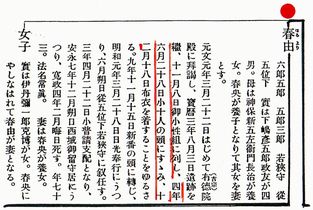 春由
はるより
六郎五郎 五郎三郎 若狭守 從
五位下 實は下嶋彦五郎政友が四
男。母は神保新五左衛門長治が養
女。春央が養子となりて其女を妻
とす。
元文元年三月二十二日はじめて有德院
(吉宗)
殿に拜謁し、寶曆三年八月三日遺跡を
繼、十一月八日御小性組に列し、四年
六月二十八日小十人の頭にすゝみ、十
二月十八日布衣を着することをゆるさ
る。九年十一月十五日新番の頭に轉じ、
明和元年三月二十八日日光奉行にうつ
り、六月朔日從五位下若狭守に叙任す。
三年四月二十二日小普請支配となり、
安永七年十二月朔日西城御留守居にう
つり、寛政四年二月晦日死す。年七十
三。法名常眞。 妻は春央が養女。
女子 實は伊丹彌一郎克博が女。春央に
やしなはれて春由が妻となる。